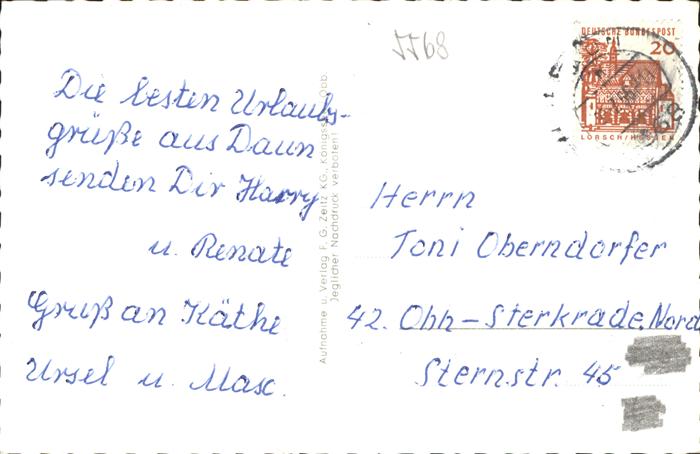 JJ68
DEUTSCHE BUNDESPOST
20
LORSCH/HESSEN
68
Die besten Urlaubs-
grüße aus Daun
senden Dir Harry
u. Renate
Gruß an Käthe
Ursel u. Max.
Aufnahme u. Verlag F. G. Zeitz KG., Königssee/Obb.
Jeglicher Nachdruck verboten!
Herrn
Toni Oberndorfer
42. Obh-Sterkrade.Nord
Sternstr. 45